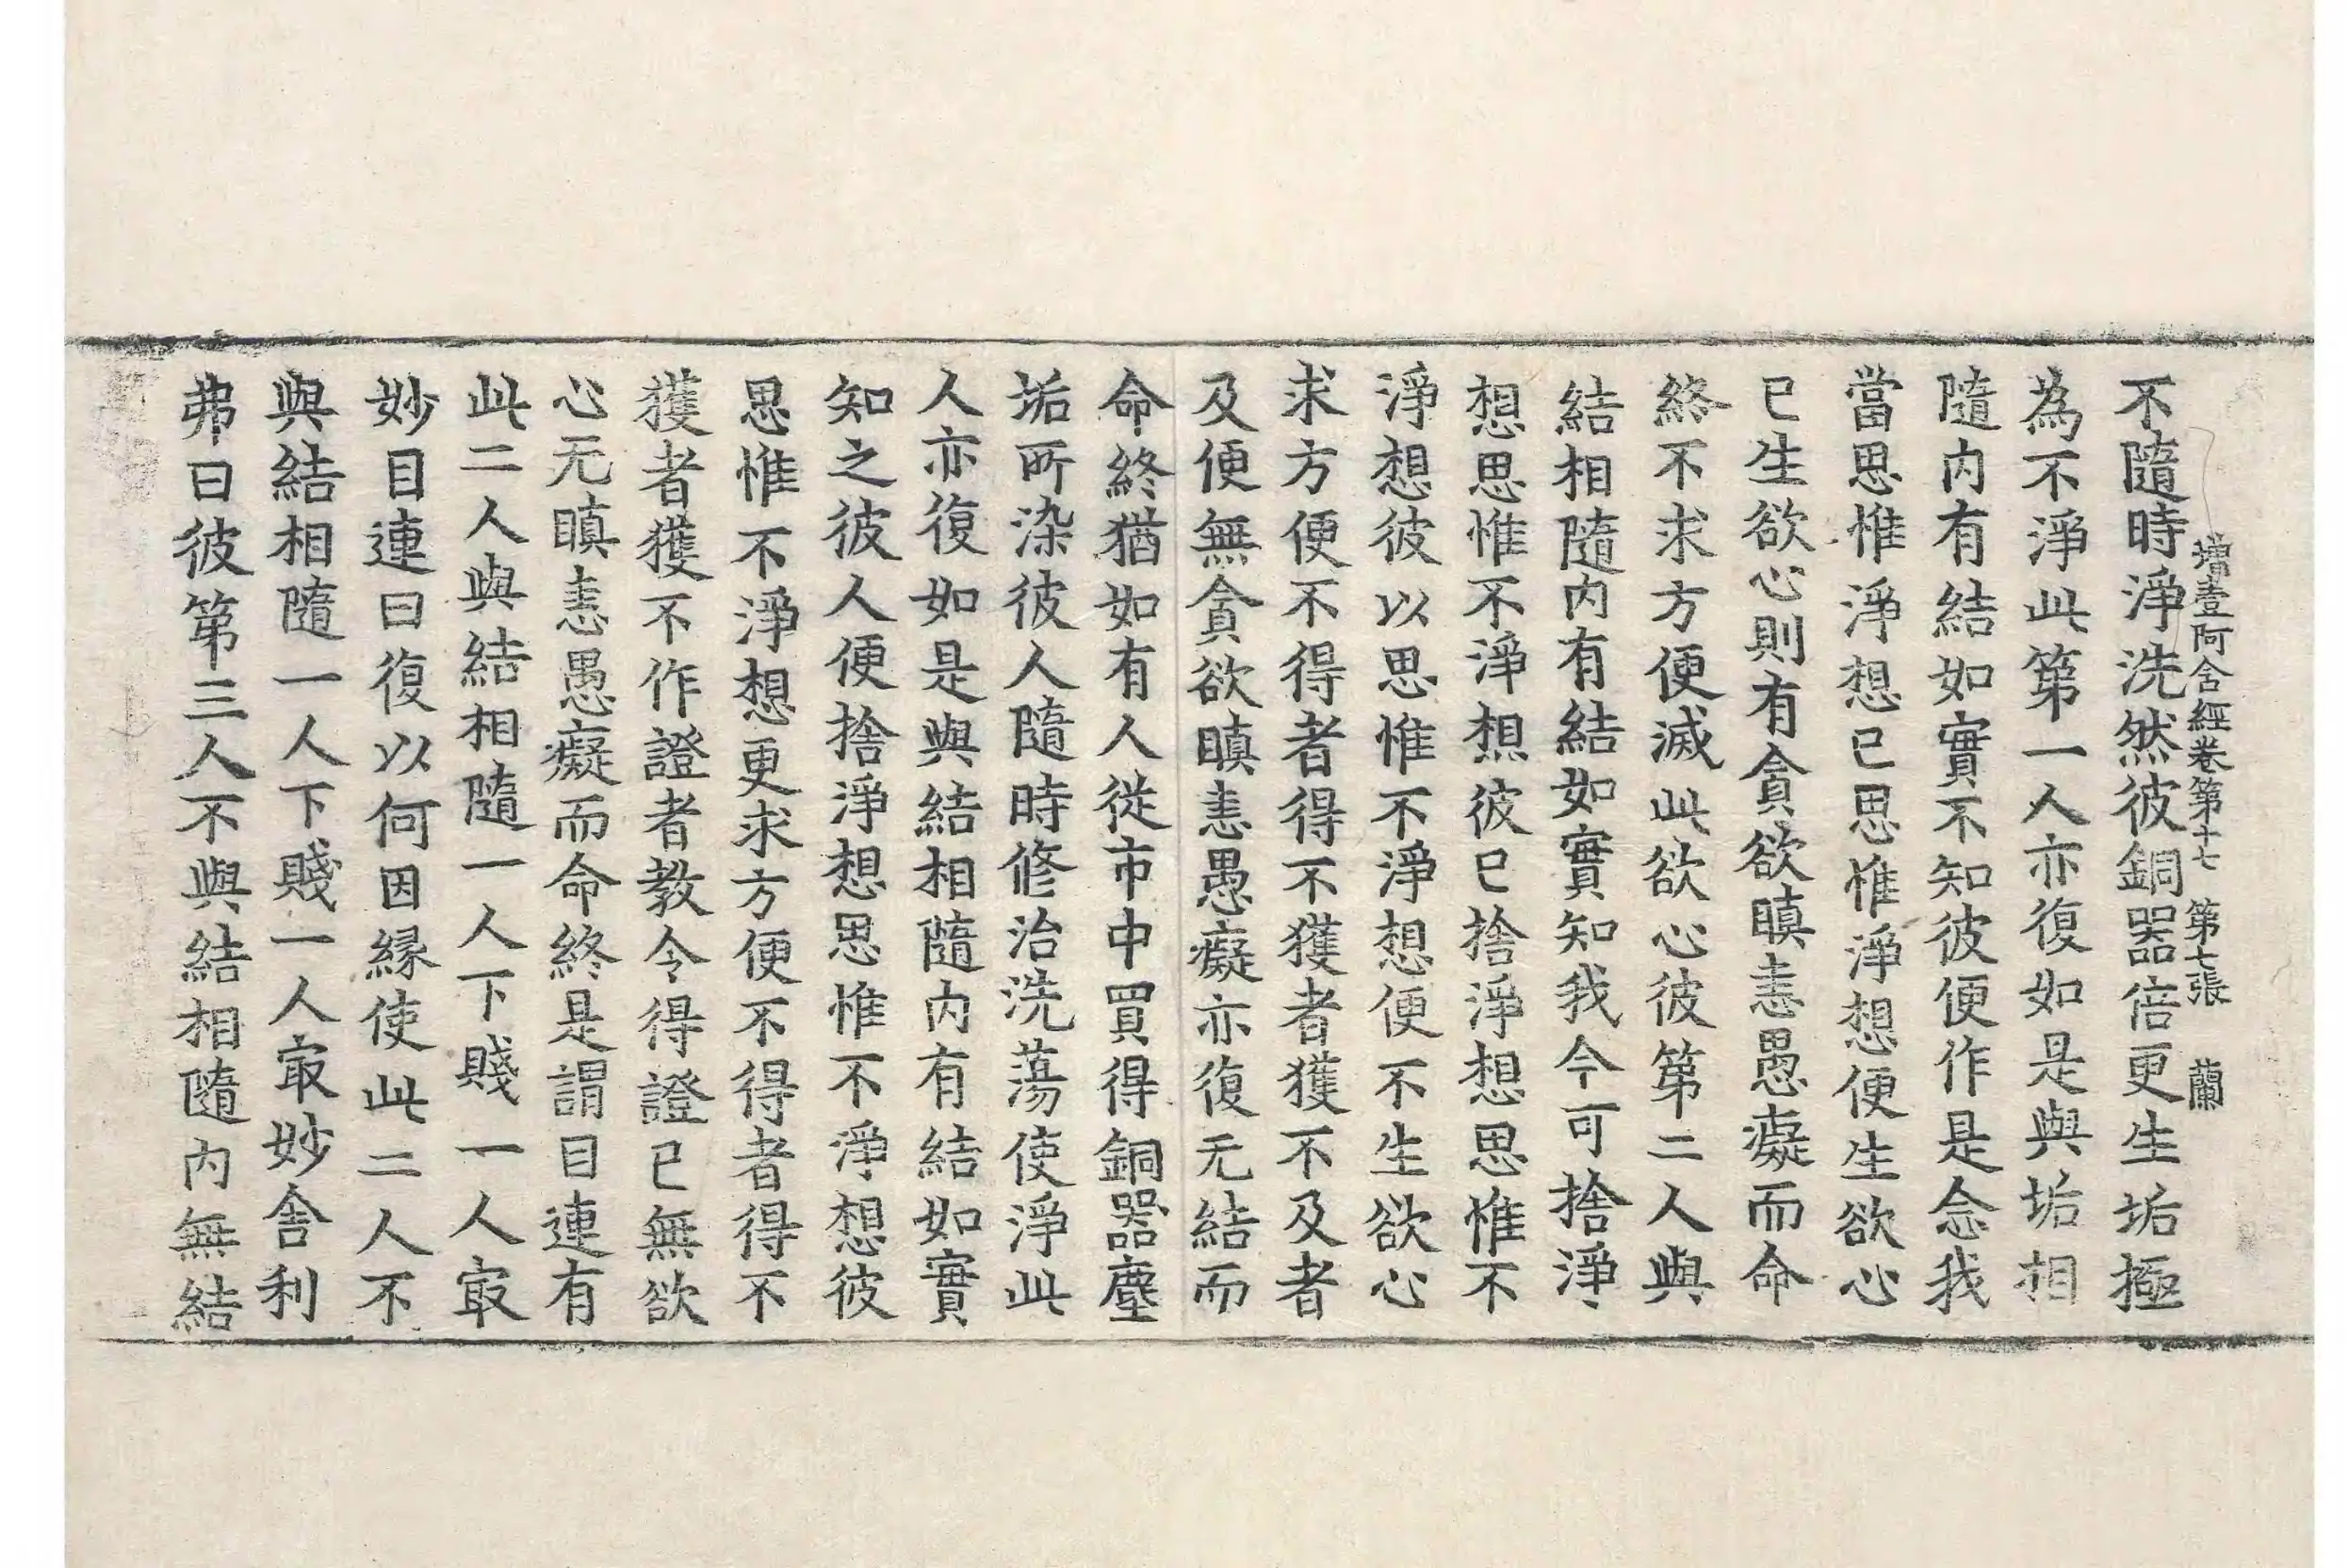 增壹阿含經卷第十七 第七張 蘭
不隨時淨洗然彼銅器倍更生垢極
為不淨此第一人亦復如是與垢相
隨內有結如實不知彼便作是念我
當思惟淨想已思惟淨想便生欲心
已生欲心則有貪欲瞋恚愚癡而命
終不求方便滅此欲心彼第二人與
結相隨內有結如實知我今可捨淨
想思惟不淨想彼已捨淨想思惟不
淨想彼以思惟不淨想便不生欲心
求方便不得者得不獲者獲不及者
及便無貪欲瞋恚愚癡亦復无結而
命終猶如有人從市中買得銅器塵
垢所染彼人隨時修治洗蕩使淨此
人亦復如是與結相隨內有結如實
知之彼人便捨淨想思惟不淨想彼
思惟不淨想更求方便不得者得不
獲者獲不作證者教令得證已無欲
心无瞋恚愚癡而命終是謂目連有
此二人與結相隨一人下賤一人㝡
妙目連曰復以何因緣使此二人不
與結相隨一人下賤一人㝡妙舍利
弗曰彼第三人不與結相隨內無結